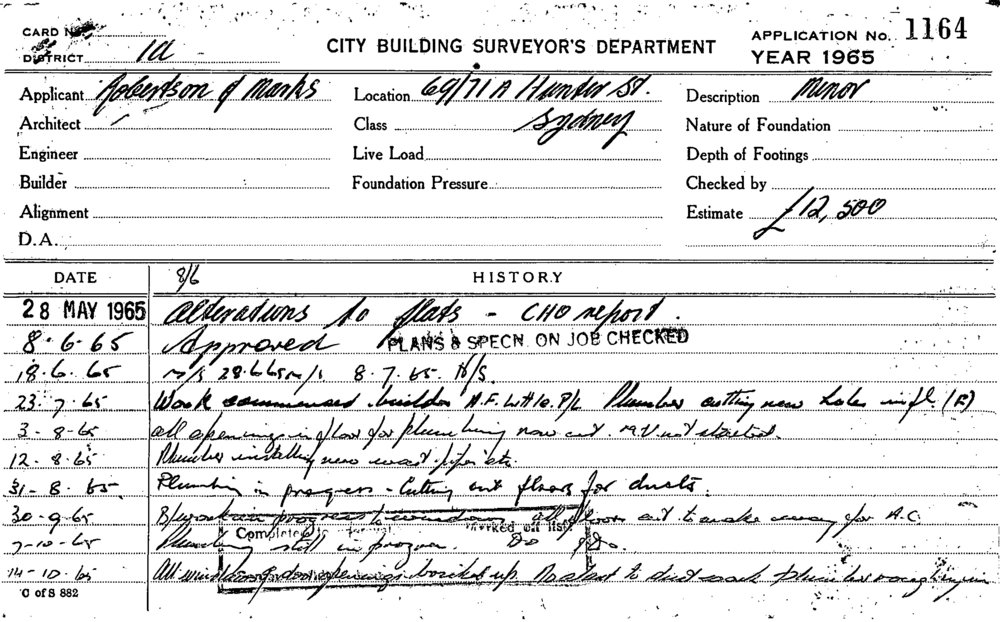 CARD No.
CITY BUILDING SURVEYOR'S DEPARTMENT
APPLICATION No. 1164
DISTRICT 1a
YEAR 1965
Applicant Robertson & Marks
Location 69/71A Hunter St.
Description Minor
Architect
Class Sydney
Nature of Foundation
Engineer
Live Load
Depth of Footings
Builder
Foundation Pressure
Checked by
Alignment
Estimate £12,500
D.A.
DATE
8/6
HISTORY
28 MAY 1965 Alterations to flats - CHO report.
8.6.65 Approved PLANS & SPECN. ON JOB CHECKED
18.6.65 N/S 28.6.65 N/S 8.7.65. N/S.
23.7.65 Work commenced. builder Plumber cutting new holes in fl.
3-8-65 all openings in floor for plumbing now cut. not started.
12.8.65 Plumber installing new waste pipes etc.
31-8-65 Plumbing in progress - Cutting out floors for ducts.
30-9-65 in progress to windows all floors cut to make way for A.C.
Completed formal marked off list
7-10-65 Plumbing still in progress. Do
14-10-65 All window & door openings bricked up to duct work plumber
C of S 882